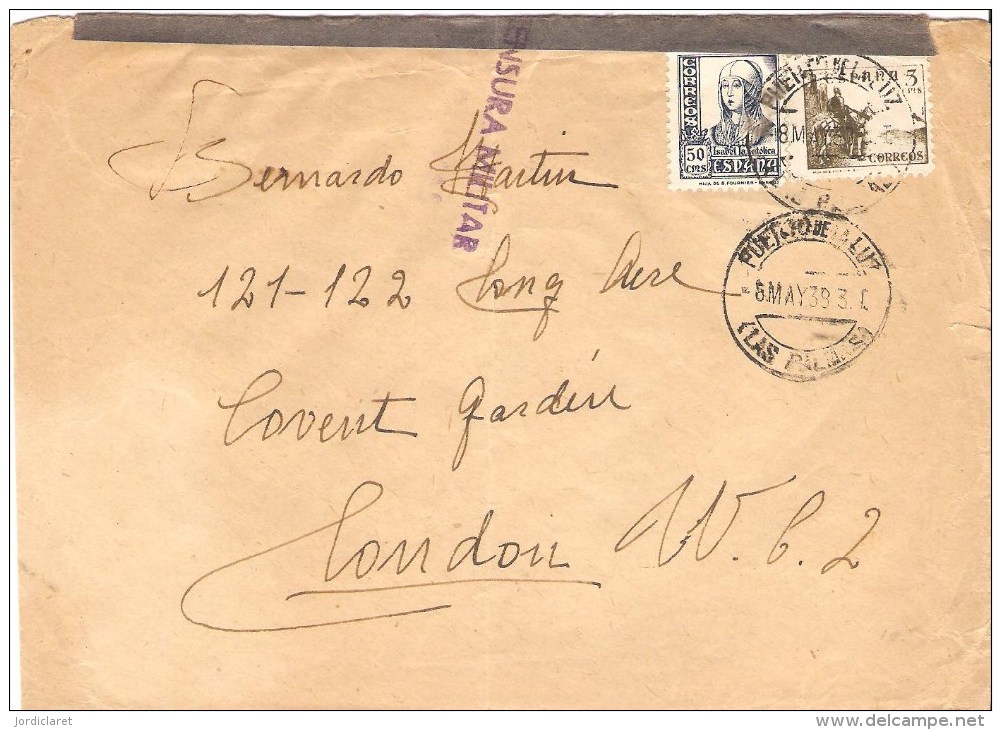 CENSURA MILITAR
CORREOS
50 CTS
Isabel la Católica
ESPAÑA
HIJA DE B. FOURNIER - BURGOS
ESPAÑA 5 CTS
CORREOS
PUERTO DE LA LUZ
8 MAY 38
PUERTO DE LA LUZ
8 MAY 38 3.
(LAS PALMAS)
Bernardo Martin
121-122 Long Acre
Covent Garden
London W.C.2
jordiclaret
www.delcampe.net